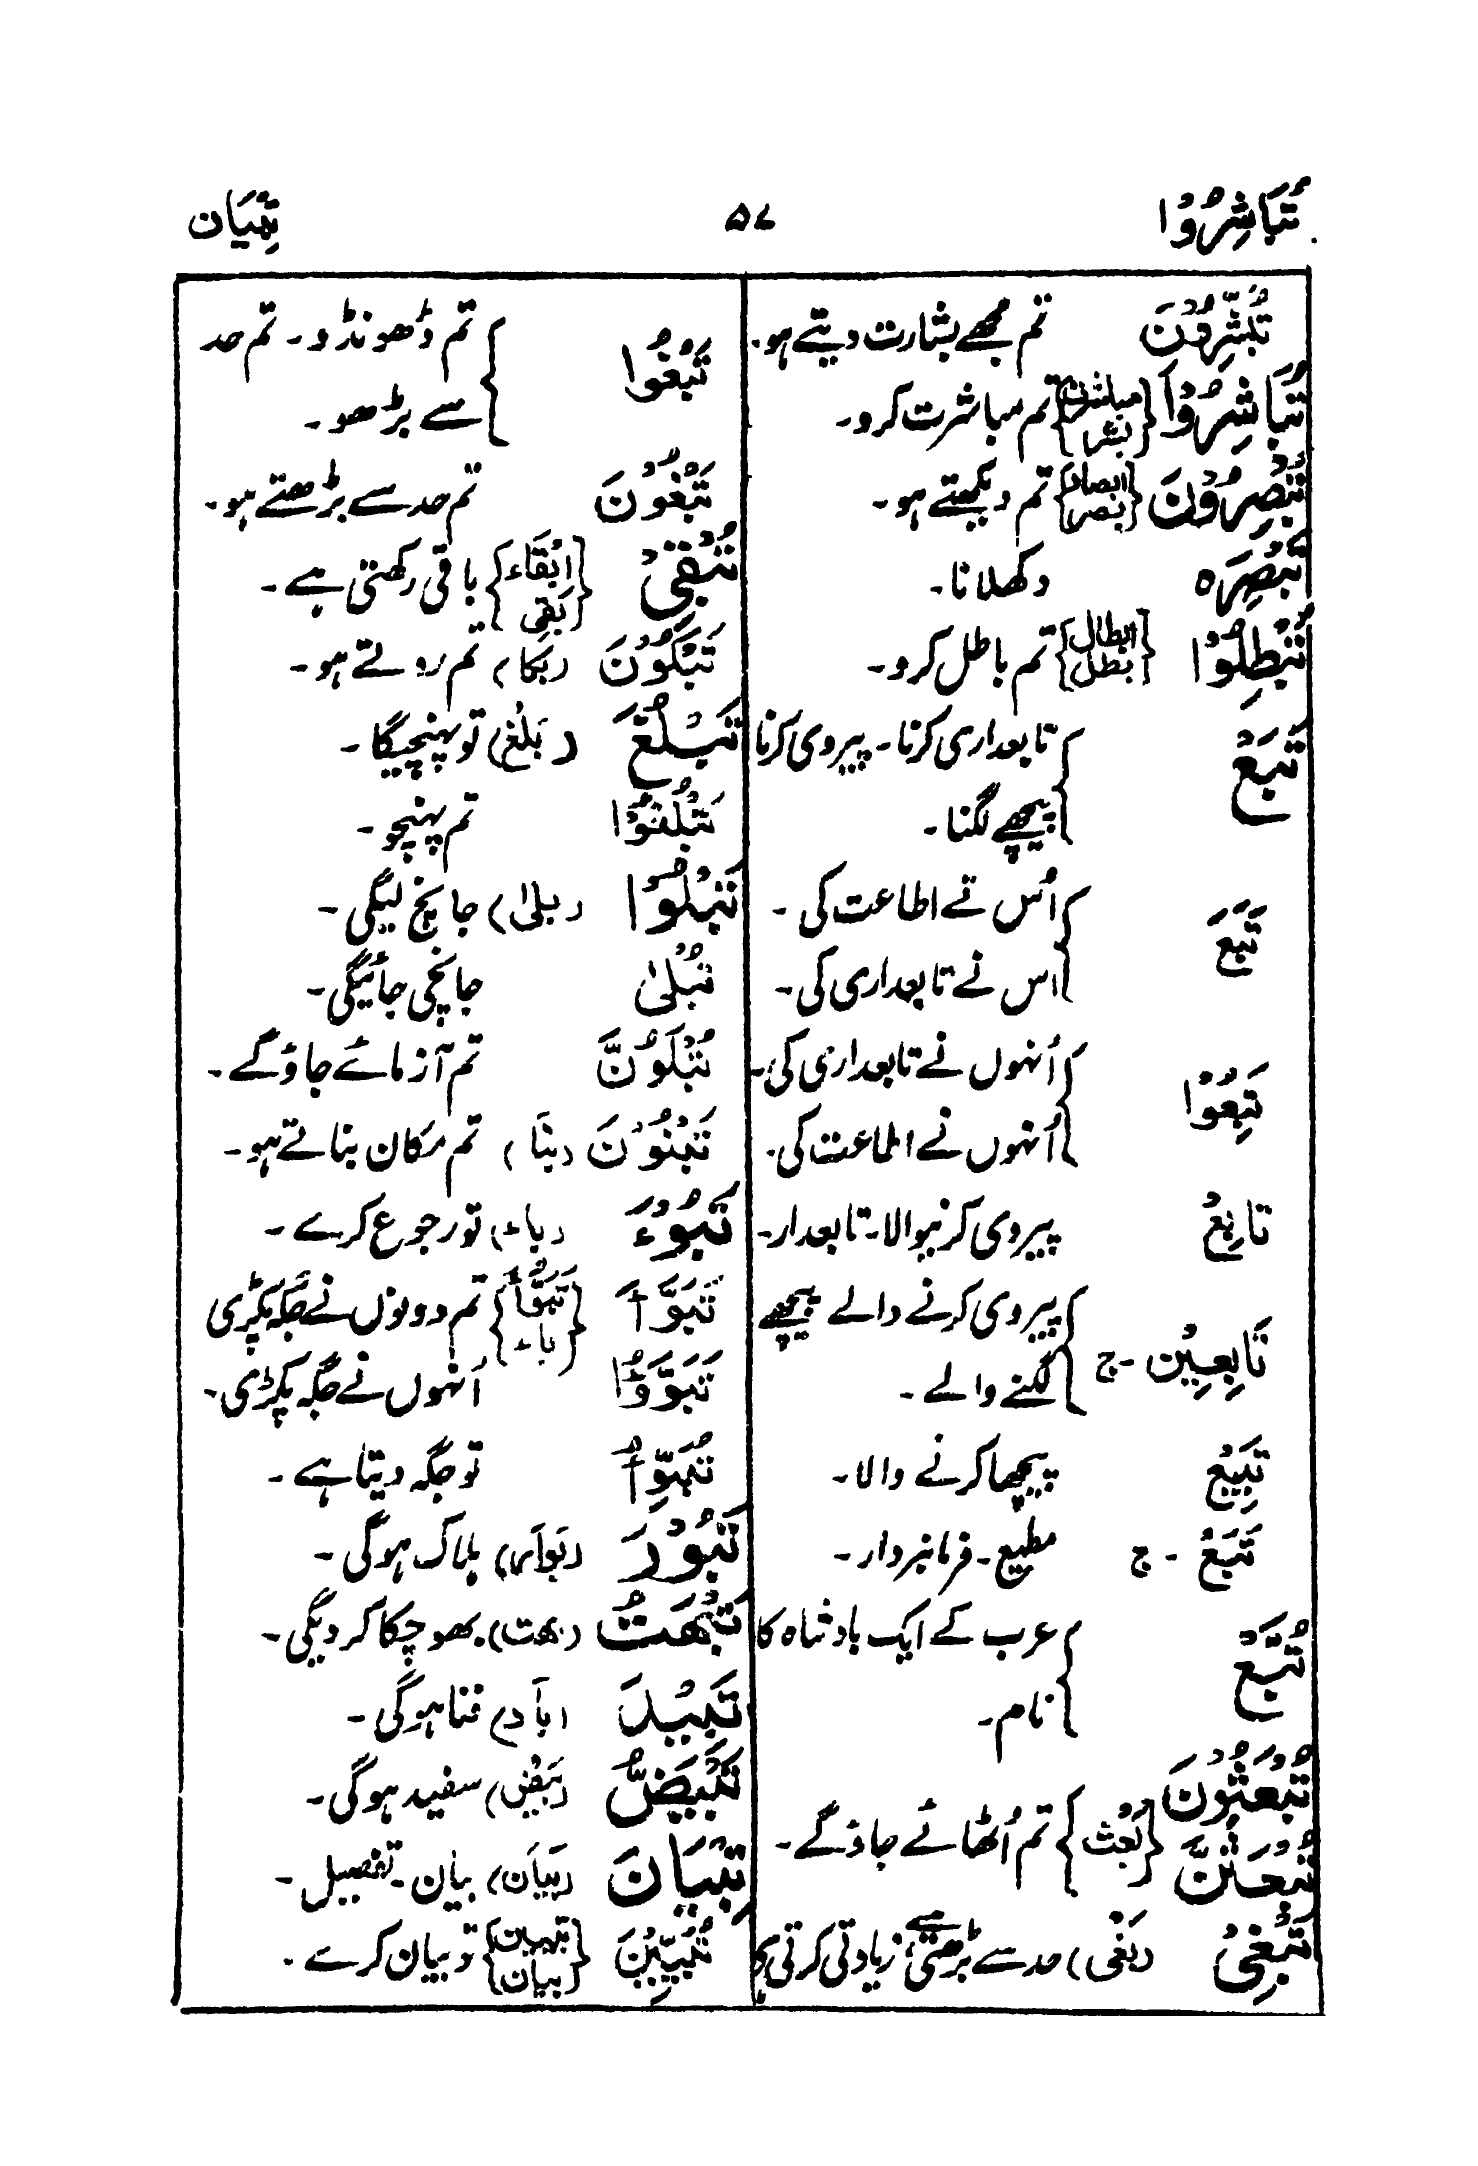 تُبَاشِرُوْا ۵۷ تِبْيَان
تُبَشِّرُوْنَ تم مجھے بشارت دیتے ہو۔
تُبَاشِرُوْا {مباشرت بشر} تم مباشرت کرو۔
تُبْصِرُوْنَ {ابصار بصر} تم دیکھتے ہو۔
تَبْصِرَه دکھلانا۔
تُبْطِلُوْا {ابطال بطل} تم باطل کرو۔
تَبَعْ تابعداری کرنا۔ پیروی کرنا
پیچھے لگنا۔
تَبَعَ اُس نے اطاعت کی۔
اس نے تابعداری کی۔
تَبِعُوْا اُنہوں نے تابعداری کی۔
اُنہوں نے اطاعت کی۔
تَابِعُ پیروی کرنیوالا۔ تابعدار۔
تَابِعِيْن ۔ ج پیروی کرنے والے پیچھے
لگنے والے۔
تَبِيْعُ پیچھا کرنے والا۔
تَبَعُ ۔ ج مطیع۔ فرمانبردار۔
تُبَّعُ عرب کے ایک بادشاہ کا
نام۔
تُبْعَثُوْنَ
تُبْعَثُنَّ {بَعْث} تم اُٹھائے جاؤ گے۔
تَبْغِیْ (بَغْی) حد سے بڑھتی ہے زیادتی کرتی ہے
تَبْغُوْا تم ڈھونڈو۔ تم حد
سے بڑھو۔
تَبْغُوْنَ تم حد سے بڑھتے ہو۔
تُبْقِیْ {اِبْقَاء بَقِی} باقی رکھتی ہے۔
تَبْكُوْنَ (بکا) تم روتے ہو۔
تَبْلُغَ (بَلَغَ) تو پہنچیگا۔
تَبْلُغُوْا تم پہنچو۔
تَبْلُوْا (بلیٰ) جانچ لیگی۔
تُبْلیٰ جانچی جائیگی۔
تُبْلَوُنَّ تم آزمائے جاؤ گے۔
تَبْنُوْنَ (بنَا) تم مکان بناتے ہو۔
تَبُوْءَ (باء) تو رجوع کرے۔
تَبَوَّأَ {تَبَوُّأ باء} تم دونوں نے جگہ پکڑی
تَبَوَّؤُا اُنہوں نے جگہ پکڑی۔
تُبَوِّأُ تو جگہ دیتا ہے۔
تَبُوْرَ (بَوَار) ہلاک ہوگی۔
تَبْهَتُ (بھت) بھوچکا کر دیگی۔
تَبِيْدَ (بَاَد) فنا ہوگی۔
تَبْيَضُّ (بَيْض) سفید ہوگی۔
تِبْيَانَ (بَيَان) بیان۔ تفصیل۔
تُبَيِّنَ {تبیین بیان} تو بیان کرے۔